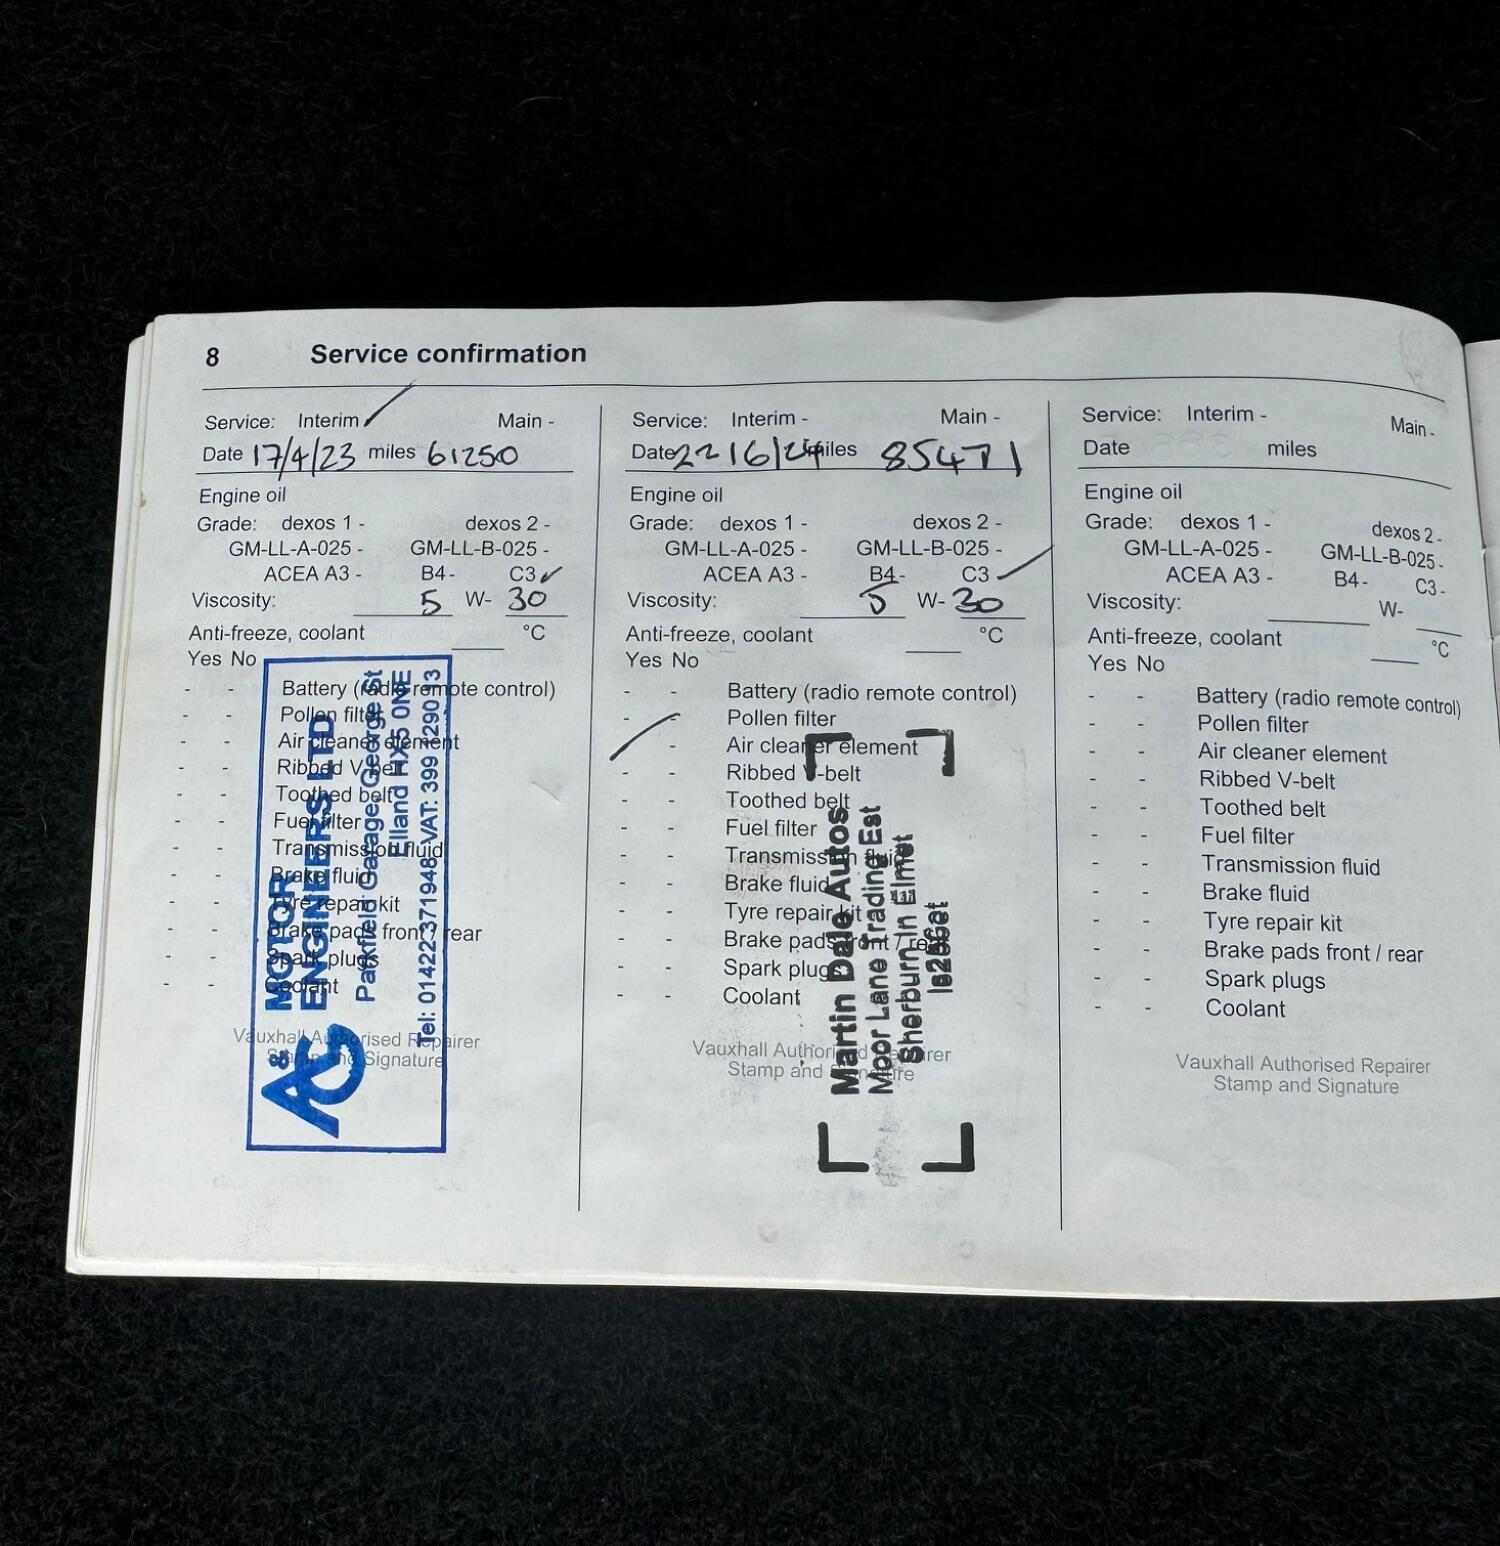 8 Service confirmation
Service: Interim Main -
Date 17/4/23 miles 61250
Engine oil
Grade: dexos 1 - dexos 2 -
GM-LL-A-025 - GM-LL-B-025 -
ACEA A3 - B4 - C3 ✓
Viscosity: 5 W- 30
Anti-freeze, coolant °C
Yes No
- - Battery (radio remote control)
- - Pollen filter
- - Air cleaner element
- - Ribbed V-belt
- - Toothed belt
- - Fuel filter
- - Transmission fluid
- - Brake fluid
- - Tyre repair kit
- - Brake pads front / rear
- - Spark plugs
- - Coolant
Vauxhall Authorised Repairer
Stamp and Signature
A&G MOTOR
ENGINEERS LTD
Parkfield Garage, George St
Elland HX5 0NE
Tel: 01422 371948 VAT: 399
Service: Interim - Main -
Date 22/6/24 miles 85471
Engine oil
Grade: dexos 1 - dexos 2 -
GM-LL-A-025 - GM-LL-B-025 -
ACEA A3 - B4- C3 ✓
Viscosity: 5 W- 30
Anti-freeze, coolant °C
Yes No
- - Battery (radio remote control)
- - Pollen filter
✓ - Air cleaner element
- - Ribbed V-belt
- - Toothed belt
- - Fuel filter
- - Transmission fluid
- - Brake fluid
- - Tyre repair kit
- - Brake pads front / rear
- - Spark plugs
- - Coolant
Vauxhall Authorised Repairer
Stamp and Signature
Martin Dale Autos
Moor Lane Trading Est
Sherburn In Elmet
Service: Interim - Main -
Date miles
Engine oil
Grade: dexos 1 - dexos 2 -
GM-LL-A-025 - GM-LL-B-025 -
ACEA A3 - B4- C3 -
Viscosity: W-
Anti-freeze, coolant °C
Yes No
- - Battery (radio remote control)
- - Pollen filter
- - Air cleaner element
- - Ribbed V-belt
- - Toothed belt
- - Fuel filter
- - Transmission fluid
- - Brake fluid
- - Tyre repair kit
- - Brake pads front / rear
- - Spark plugs
- - Coolant
Vauxhall Authorised Repairer
Stamp and Signature